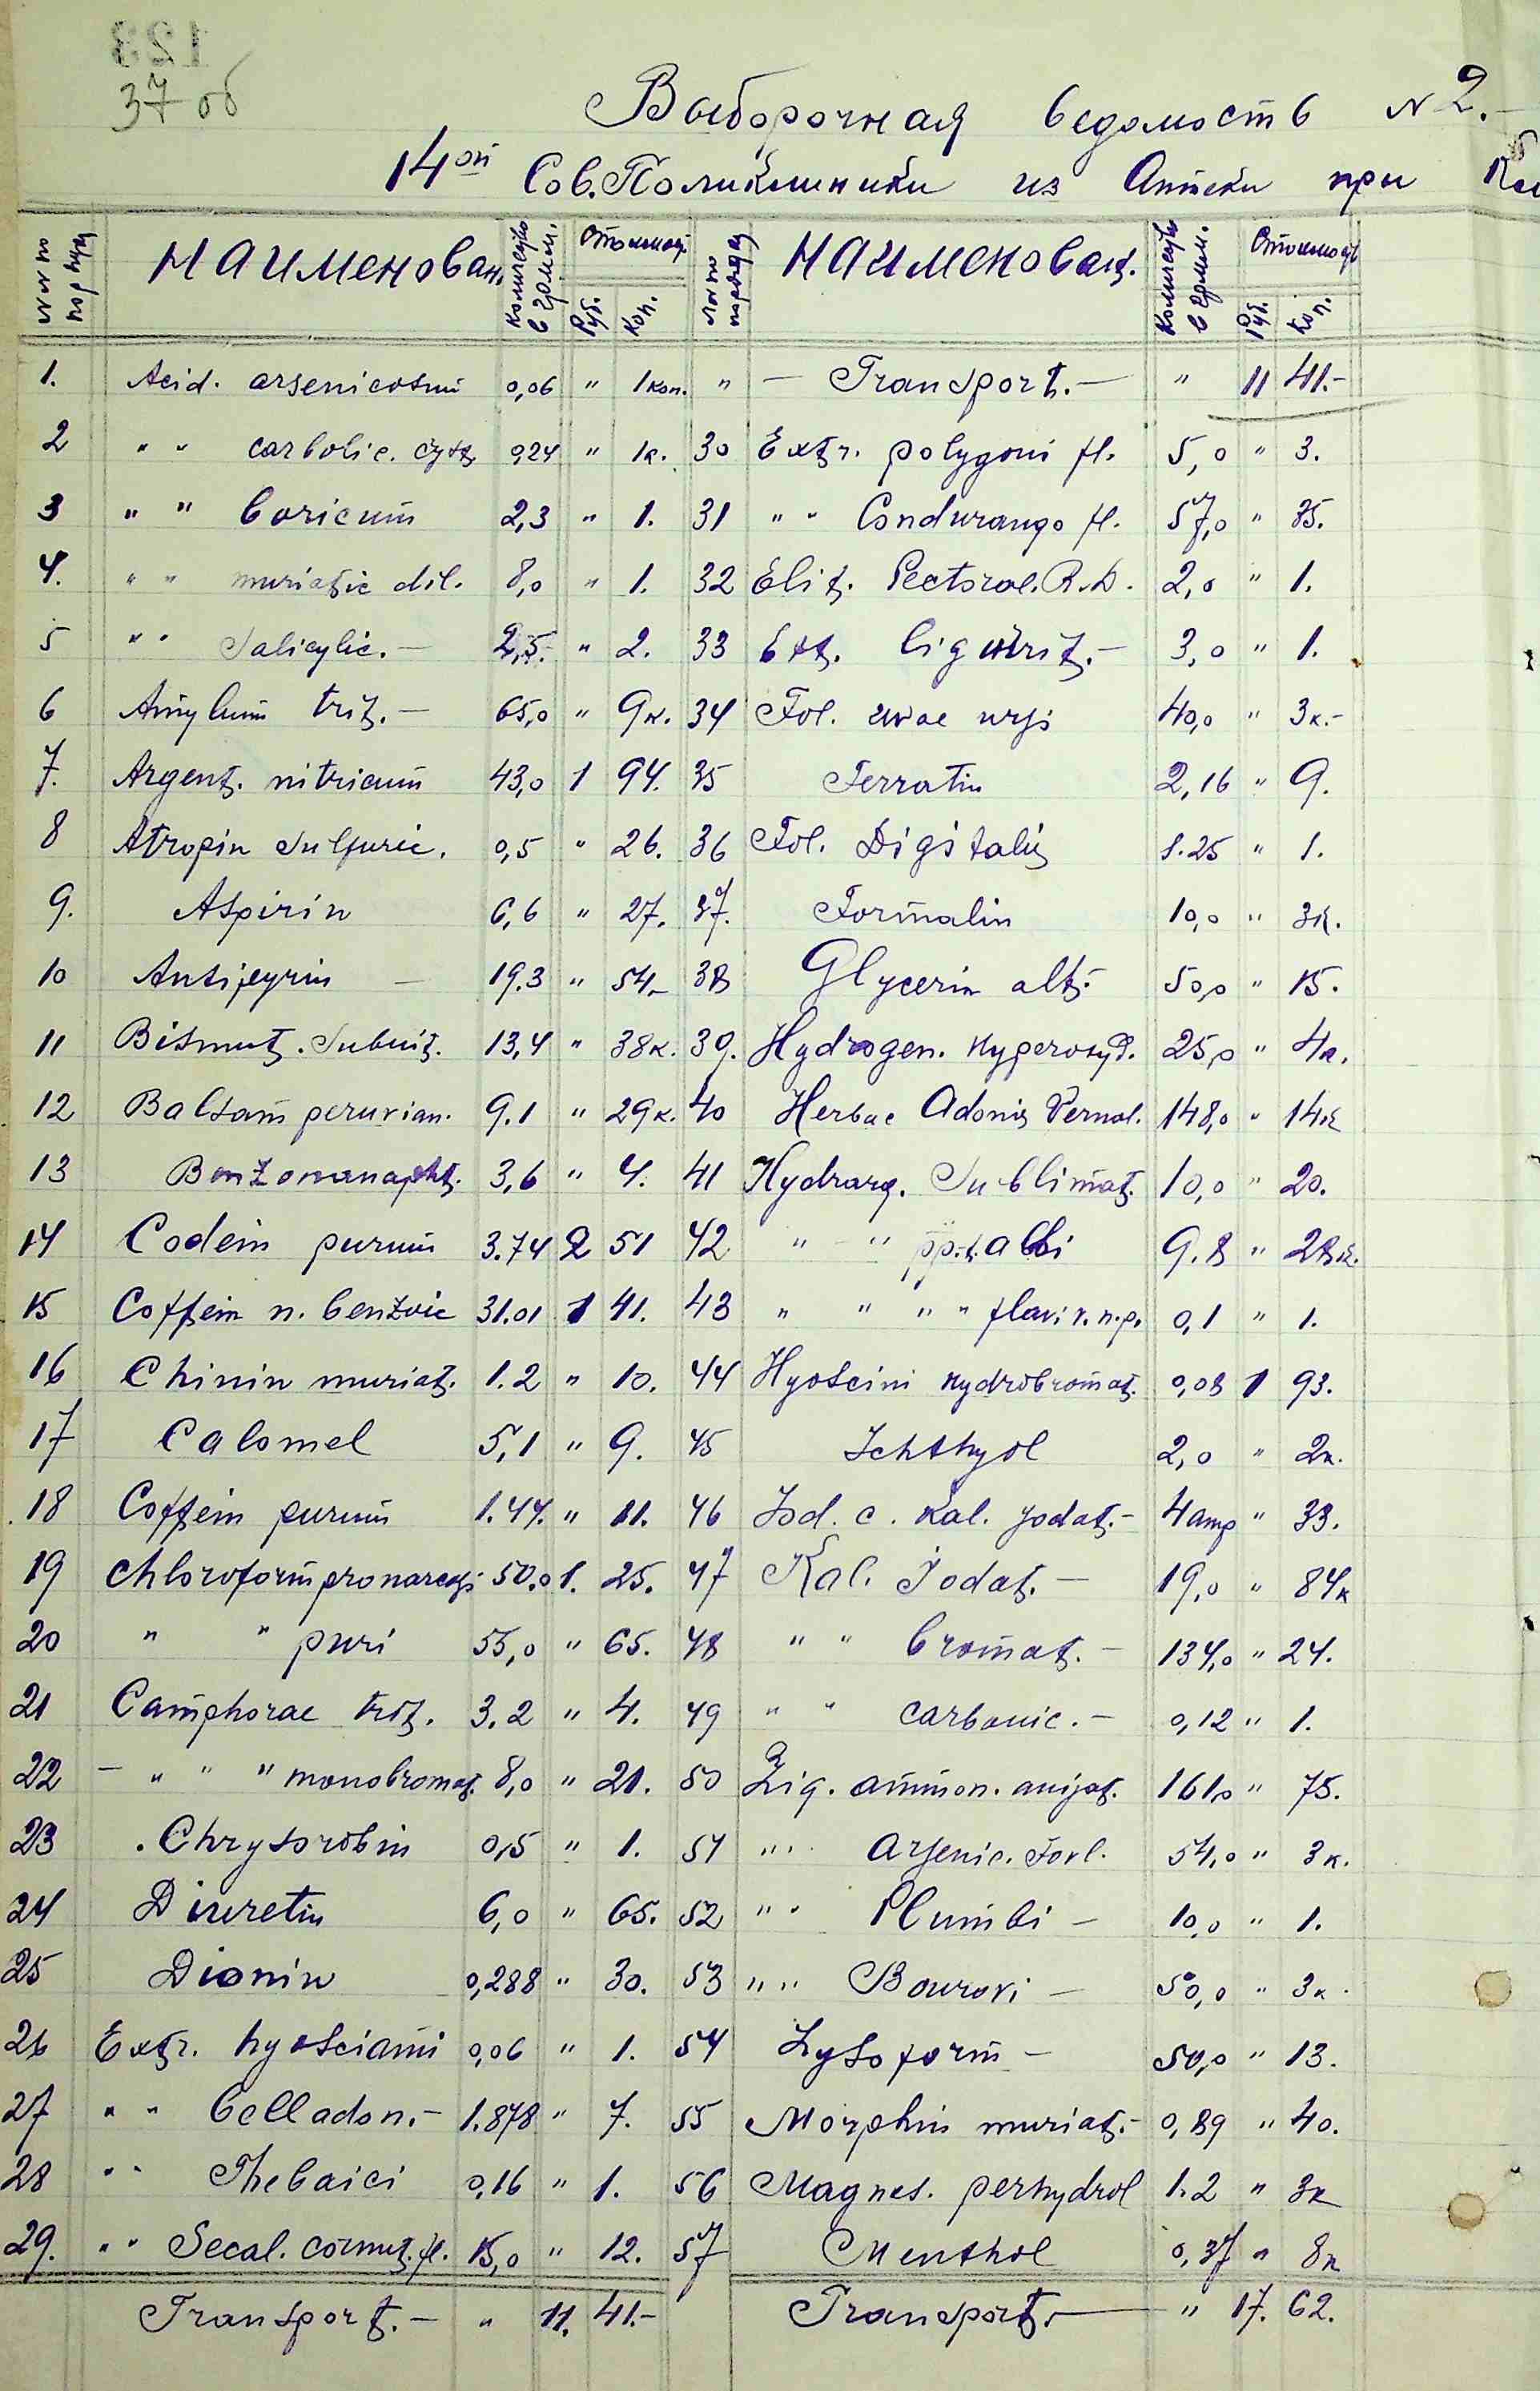 123
37 об
Выборочная ведомость № 2.-
14ой Сов. Поликлиники из Аптеки при
№№ по порядку Наименован. Количество в грам. Стоимость Руб. Коп. №№ по порядку Наименован. Количество в грам. Стоимость Руб. Коп.
1. Acid. arsenicosum 0,06 " 1 коп. " - Transport.- " 11 41.-
2 " " carbolic. cryst. 0,24 " 1к. 30 Extr. polygoni fl. 5,0 " 3.
3 " " boricum 2,3 " 1. 31 " " Condurango fl. 57,0 " 35.
4. " " muriatic dil. 8,0 " 1. 32 Elix. Pectoral. R.D. 2,0 " 1.
5 " " Salicylic.- 2,5. " 2. 33 Ext. liquirit.- 3,0 " 1.
6 Amylum trit.- 65,0 " 9к. 34 Fol. uvae ursi 40,0 " 3к.-
7. Argent. nitricum 43,0 1 94. 35 Ferratin 2,16 " 9.
8 Atropin Sulfuric. 0,5 " 26. 36 Fol. Digitalis 1.25 " 1.
9. Aspirin 6,6 " 27. 37. Formalin 10,0 " 3к.
10 Antipyrin - 19.3 " 54- 38 Glycerin alb.- 50,0 " 15.
11 Bismut. Subnit. 13,4 " 38к. 39. Hydrogen. hyperoxyd. 25,0 " 4к.
12 Balsam peruvian. 9.1 " 29к. 40 Herbae Adonis Vernal. 148,0 " 14к
13 Benzonanapht. 3,6 " 4. 41 Hydrarg. Sublimat. 10,0 " 20.
14 Codein purum 3.74 2 51 42 " " pp.t. albi 9.8 " 28к.
15 Coffein n. benzoic 31.01 1 41. 43 " " " " flavi v.h.p. 0,1 " 1.
16 Chinin muriat. 1.2 " 10. 44 Hyoscini hydrobromat. 0,08 1 93.
17 Calomel 5,1 " 9. 45 Ichthyol 2,0 " 2к.
18 Coffein purum 1.44. " 11. 46 Jod. c. Kal. jodat.- 4 amp " 33.
19 Chloroform pro narcosi 50.0 1. 25. 47 Kal. Jodat.- 19,0 " 84к
20 " " puri 55,0 " 65. 48 " " bromat.- 134,0 " 24.
21 Camphorae trit. 3.2 " 4. 49 " " carbonic.- 0,12 " 1.
22 - " " " monobromat. 8,0 " 21. 50 Liq. ammon. anisat. 161,0 " 75.
23 Chrysorobin 0,5 " 1. 51 " " Arsenic. Fovl. 54,0 " 3к.
24 Diuretin 6,0 " 65. 52 " " Plumbi - 10,0 " 1.
25 Dionin 0,288 " 30. 53 " " Bourovi - 50,0 " 3к.
26 Extr. hyosciami 0,06 " 1. 54 Lysoform - 50,0 " 13.
27 " " belladon.- 1.878 " 7. 55 Morphin muriat.- 0,89 " 40.
28 " " Thebaici 0,16 " 1. 56 Magnes. perhydrol 1.2 " 3к
29. " " Secal. cornut. fl. 15,0 " 12. 57 Menthol 0,37 " 8к
Transport.- " 11. 41.- Transport.- " 17. 62.